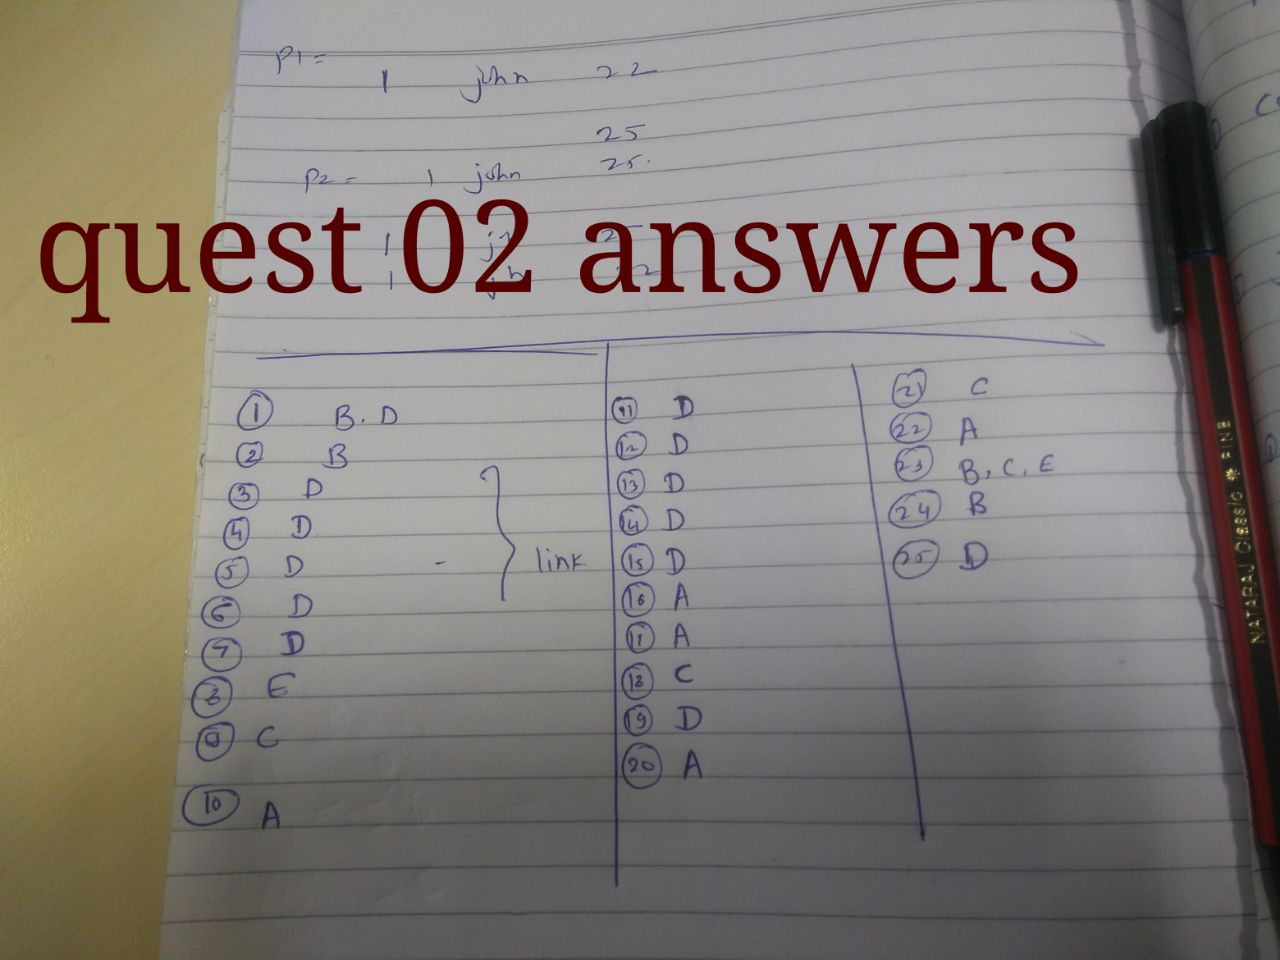 P1 =
1 john 22
25
P2 = 1 john 25.
quest 02 answers
1 B. D
2 B
3 D
4 D
5 D -
6 D
link
7 D
8 E
9 C
10 A
11 D
12 D
13 D
14 D
15 D
16 A
17 A
18 C
19 D
20 A
21 C
22 A
23 B, C, E
24 B
25 D
NATARAJ Classic FINE